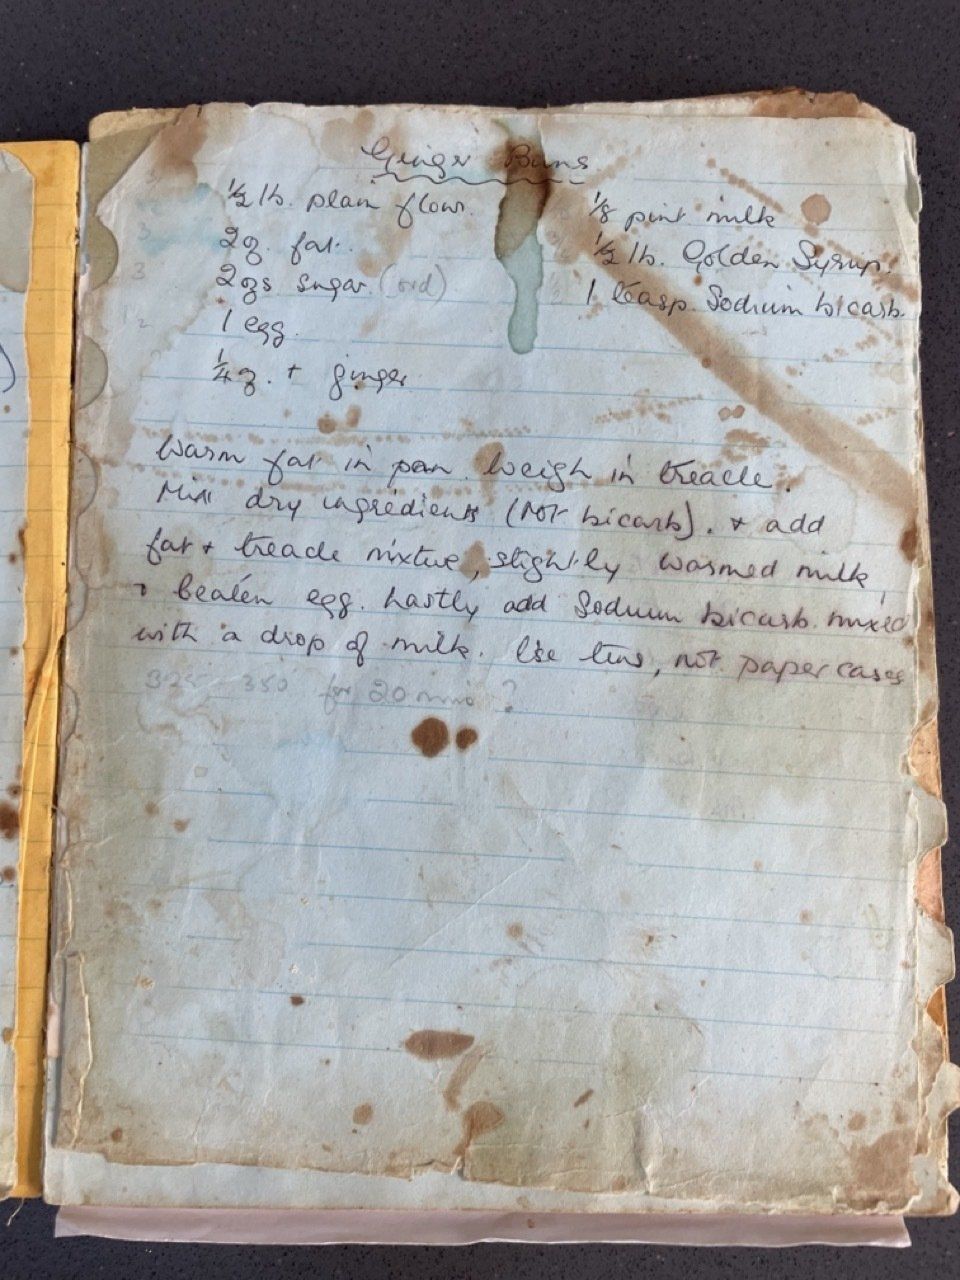 Ginger Buns
½ lb. plain flour.
2oz. fat.
2ozs sugar. (ord)
1 egg.
¼oz. + ginger
⅛ pint milk
½ lb. Golden Syrup.
1 teasp. Sodium bicarb.
Warm fat in pan. Weigh in treacle.
Mix dry ingredients (not bicarb). + add
fat + treacle mixture, slightly warmed milk,
+ beaten egg. Lastly add Sodium bicarb. mixed
with a drop of milk. Use tins, not paper cases
325 - 350 for 20 mins ?